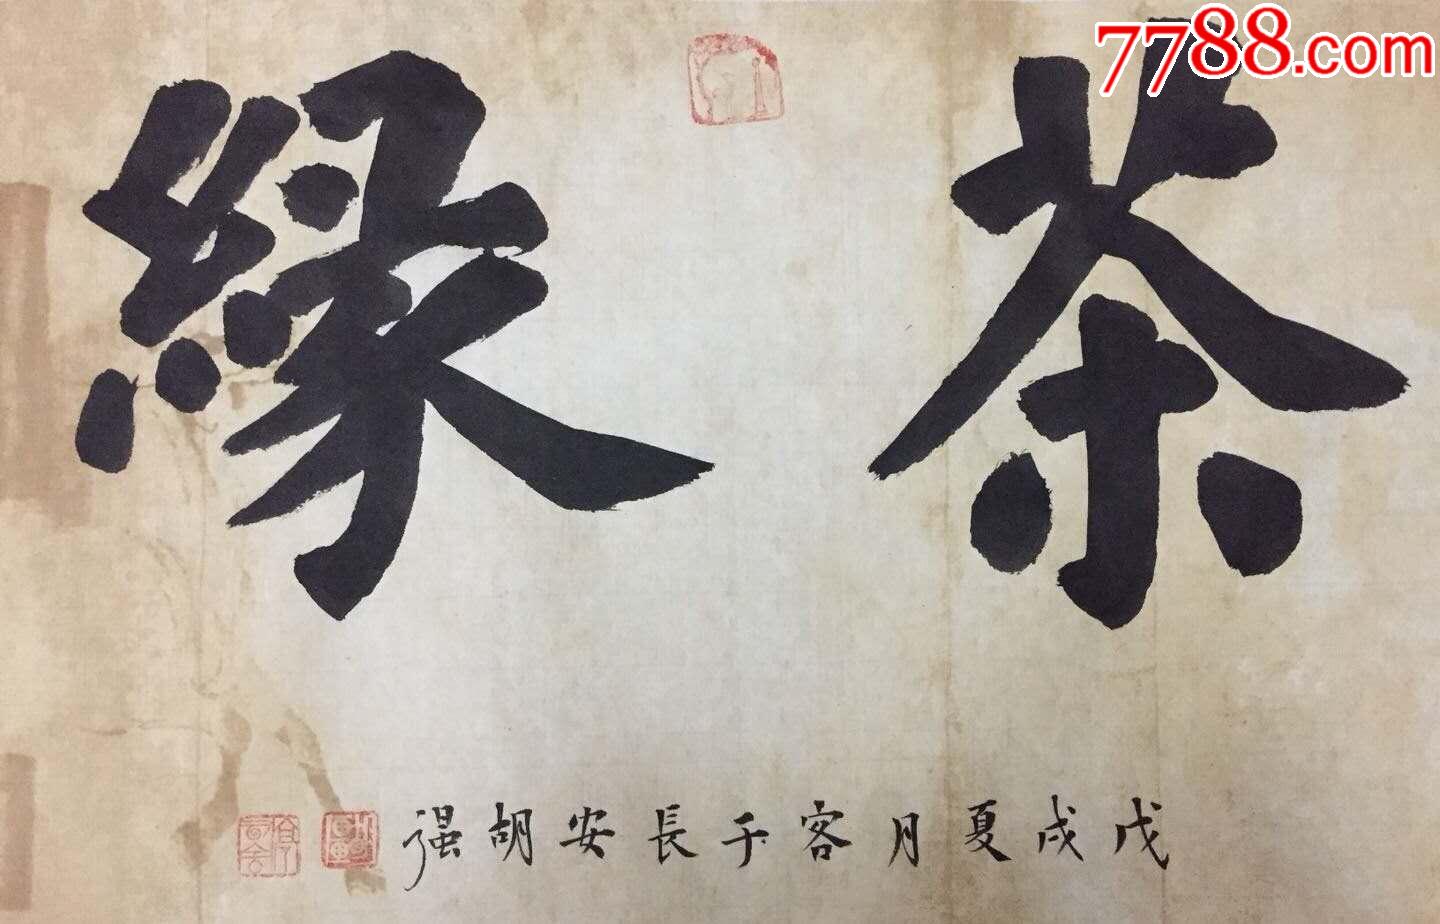 7788.com
茶緣
戊戌夏月客于長安胡强